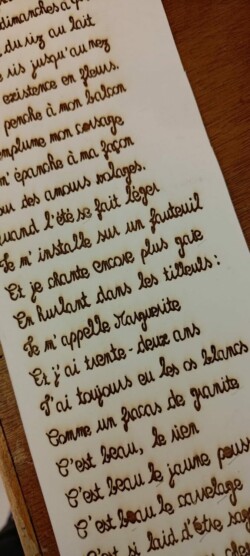 dimanches à
du riz au lait
ris jusqu'au nez
existence en fleurs.
penche à mon balcon
emplume mon corsage
m'épanche à ma façon
des amours volages.
quand l'été se fait léger
Je m'installe sur un fauteuil
Et je chante encore plus gaie
En hurlant dans les tilleuls :
Je m'appelle Marguerite
Et j'ai trente-deux ans
J'ai toujours eu les os blancs
Comme un fracas de granite
C'est beau, le rien
C'est beau le jaune
C'est beau le
C'est si laid d'être